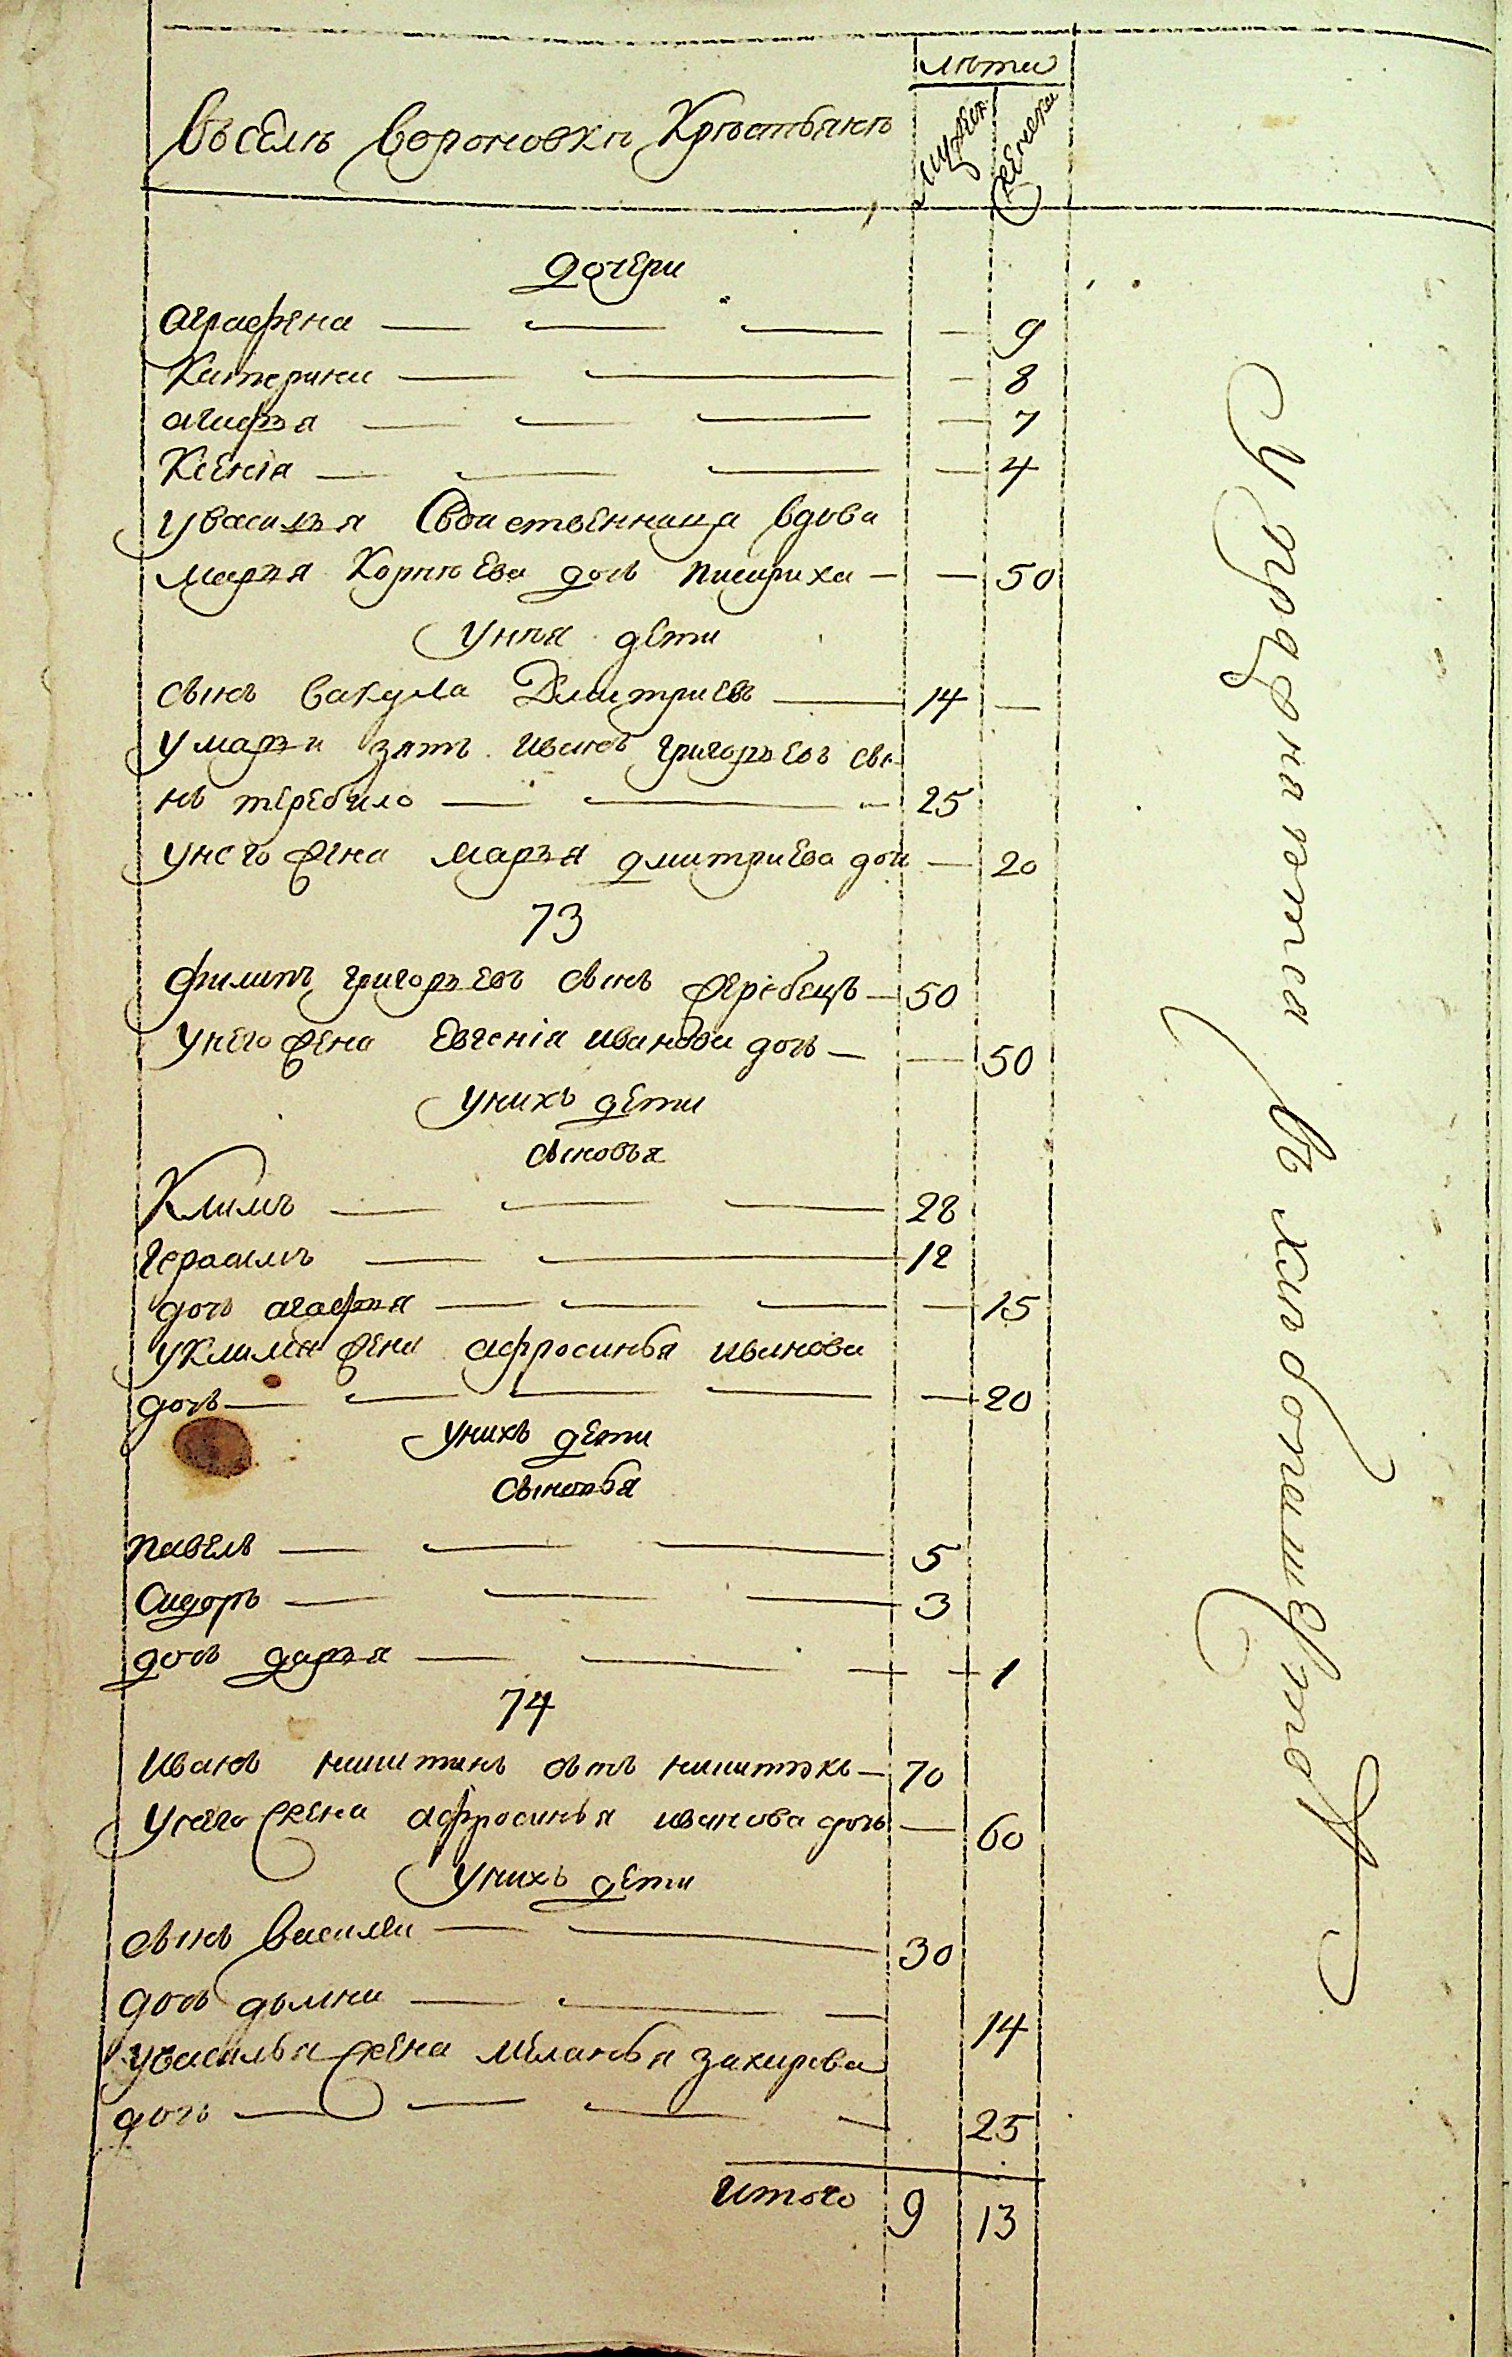 лѣта
Въселѣ Вороновкѣ Крѣстьянѣ
мужск
женска
дочери
аграфена 9
Катерина 8
агафья 7
Ксеніа 4
уВасилья Свойственница вдова
Марья Корнѣева дочь 50
унѣя дети
сынъ Вакула Дмитриевъ 14
умарьи зять иванъ григорьевъ сы
нъ теребило 25
унего жена Марья дмитриева доч 20
73
филипъ григорьевъ сынъ жеребецъ 50
унего жена Евгеніа иванова дочь 50
унихъ дети
сыновья
Климъ 28
Герасимъ 12
дочь агафья 15
уКлима жена афросинья иванова
дочь 20
унихъ дети
сыновья
Павелъ 5
Сидоръ 3
дочь дарья 1
74
Иванъ никитинъ сынъ 70
унего жена афросинья иванова дочь 60
унихъ дети
сынъ Василей 30
дочь домна 14
уВасилья жена Меланья захарова
дочь 25
Итого 9 13